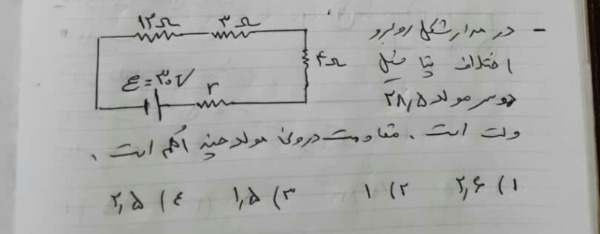 ۱۲Ω ۳Ω
۴Ω
ε=۳۰V r
- در مدار شکل روبرو
اختلاف پتانسیل
دوسر مولد ۲۸,۵
ولت است . مقاومت درونی مولد چند اُهم است .
۱) ۲,۶ ۲) ۱ ۳) ۱,۵ ۴) ۲,۵